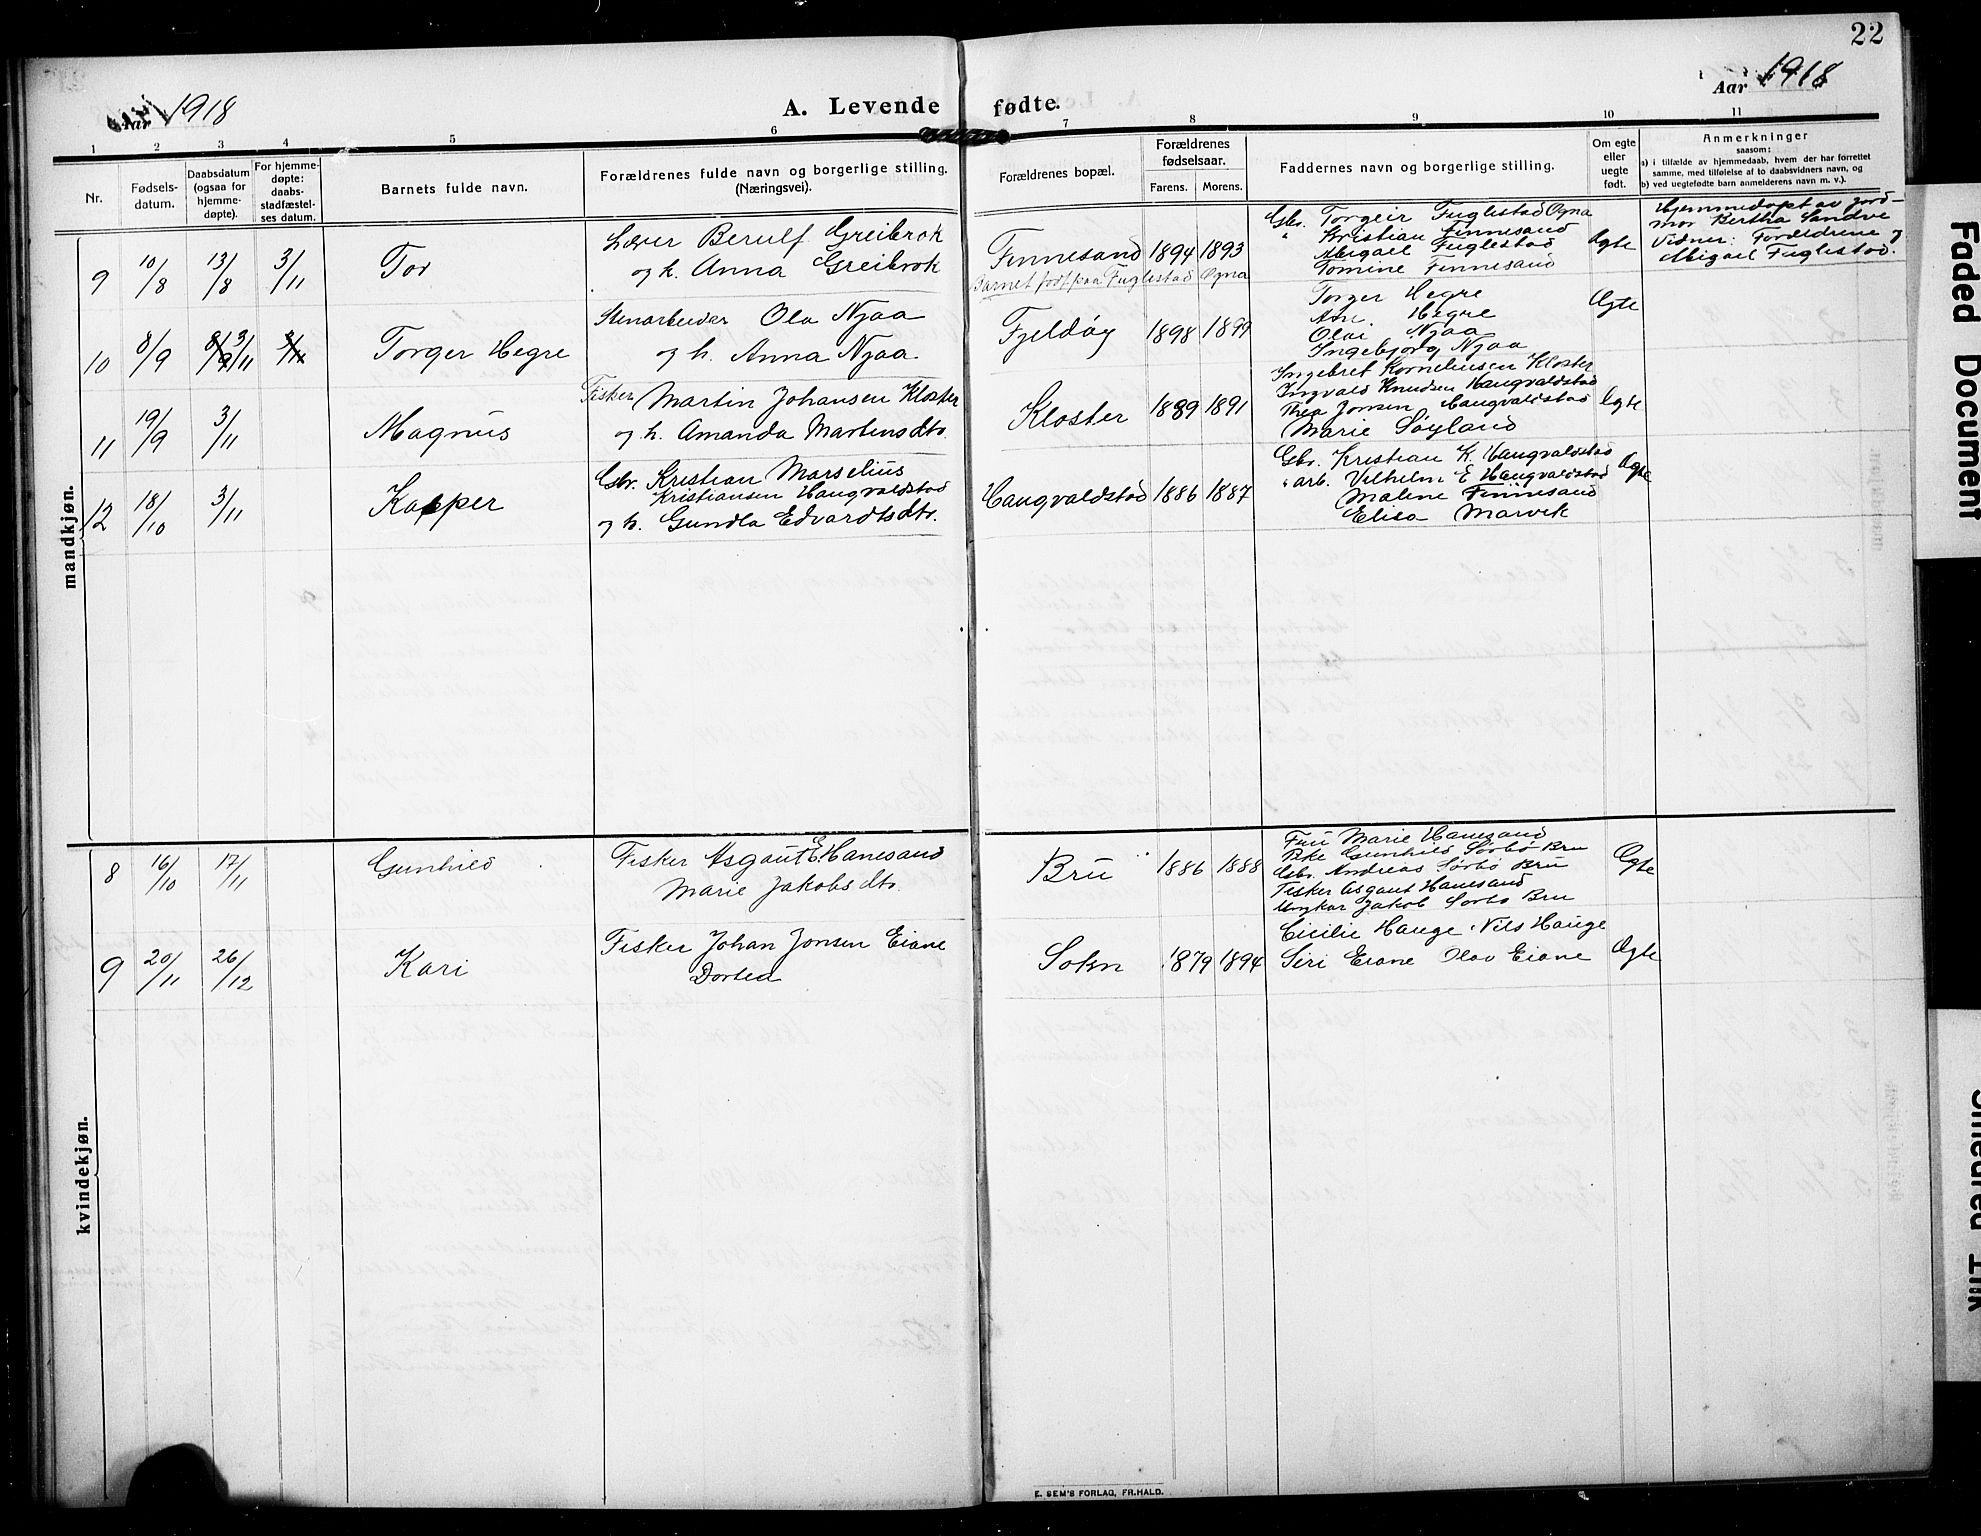 22
Aar 1918
A. Levende fødte.
Aar 1918
1 2 3 4 5 6 7 8 9 10 11
Nr.
Fødsels-
datum.
Daabsdatum
(ogsaa for
hjemme-
døpte).
For hjemme-
døpte:
daabs-
stadfæstel-
ses datum.
Barnets fulde navn.
Forældrenes fulde navn og borgerlige stilling.
(Næringsvei).
Forældrenes bopæl.
Forældrenes
fødselsaar.
Farens. Morens.
Faddernes navn og borgerlige stilling.
Om egte
eller
uegte
født.
Anmerkninger
saasom:
a) i tilfælde av hjemmedaab, hvem der har forrettet
samme, med tilføielse af to daabsvidners navn, og
b) ved uegtefødte barn anmelderens navn m. v.).
mandkjøn.
9 10/8 13/8 3/11 Tor
Lærer Berulf Greibrok
og h. Anna Greibrok
Finnesand 1894 1893
Barnet født paa Fuglestad Ogna
Gbr. Torgeir Fuglestad Ogna
" Kristian Finnesand
Abigael Fuglestad
Tomine Finnesand
Ægte
Hjemmedøpt av jord-
mor Bertha Sandve
Vidner: Forældrene &
Abigael Fuglestad.
10 8/9 8/9 3/11 3/11 Torger Hegre
Stenarbeider Ola Njaa
og h. Anna Njaa
Fjeldøy 1898 1899
Torger Hegre
Ane Hegre
Olai Njaa
Ingebjørg Njaa
Ægte
11 19/9 3/11 Magnus
Fisker Martin Johansen Kloster
og h. Amanda Martensdtr.
Kloster 1889 1891
Ingebret Korneliussen Kloster
Ingvald Knudsen Haugvaldstad
Thea Jonsen Haugvaldstad
Marie Søyland
Ægte
12 18/10 3/11 Kasper
Gbr. Kristian Marselius
Kristiansen Haugvaldstad
og h. Gundla Edvardtsdtr.
Haugvaldstad 1886 1887
Gbr. Kristian K. Haugvaldstad
" arb. Vilhelm E Haugvaldstad
Maline Finnesand
Elisa Marvik
Ægte
kvindekjøn.
8 16/10 17/11 Gunhild
Fisker Asgaut E. Hanesand
Marie Jakobsdtr.
Bru 1886 1888
Fru Marie Hanesand
Pike Gunhild Sørbø Bru
Gbr. Andreas Sørbø Bru
Fisker Asgaut Hanesand
Ungkar Jakob Sørbø Bru
Ægte
9 20/11 26/12 Kari
Fisker Johan Jonsen Eiane
Dortea
Sokn 1879 1894
Cicilie Hauge. Nils Hauge
Siri Eiane Olav Eiane
Ægte
E. SEM'S FORLAG, FR.HALD.
Faded Document
Smeared Ink